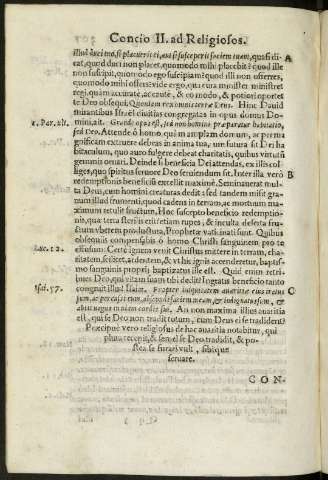 Concio II. ad Religiosos.
illud duci mo, si placuerit ei, aut si susceperit faciem tuam, quasi di- A
cat, quod duci non placet, quomodo mihi placebit? quod ille
non suscipit, quomodo ego suscipiam? quod illi non offerres,
quomodo mihi offers? vide ergo, qua cura minister ministret
regi, quam accurate, ac caute, & commodo, & potiori oportet
te Deo obsequi. Quoniam rex universæ terræ Deus. Hinc David
mirantibus Israel civitas congregatas in opus domus Do-
1. Par. ult. mini, ait. Grande opus est, non homini præparatur habitatio,
sed Deo. Attende ô homo, qui in amplam domum, ac perma
gnificam extruere debeas in anima tua, ut futura sit Dei ha
bitaculum, quo auro fulgere debeat charitatis, quibus virtutū
gemmis ornari. Deinde si beneficia Dei attendas, ex illis col-
liges, quo spiritus fervore Deo serviendum sit. Inter illa verò B
redemptionis beneficiū excellit maximè. Seminaverat mul-
ta Deus, cum homini creaturas dedit: sed tandem misit gra-
num illud frumenti, quod cadens in terram, ac mortuum ma-
ximum retulit fructum. Hoc suscepto beneficio redemptio-
nis, quæ terra sterilis extitisset rupes; & inculta deserta fru-
ctum uberem productura, Prophetæ vaticinati sunt. Quibus
obsequiis compensabis ô homo Christi sanguinem pro te
Luc. 12. effusum? Certè ignem venit Christus mittere in terram, cha-
ritatem, scilicet, ardentem, & ut hic ignis accenderetur, baptis-
mo sanguinis proprij baptizatus ille est. Quid enim retri-
bues Deo, qui vitam suam tibi dedit? Ingratus beneficio tanto
Isai. 57. congruit illud Isaiæ. Propter iniquitatem avaritiæ eius iratus C
sum, ac percussi eum, abscondi faciem meam, & indignatus sum, &
abiit vagus in viam cordis sui. An non maxima illius avaritia
est, qui se Deo non tradit totum, cum Deus ei se tradiderit?
Præcipuè verò religiosus de hac avaritia notabitur, qui
plura recepit, & semel se Deo tradidit, & po-
stea se furari vult, sibique
servare.
CON-